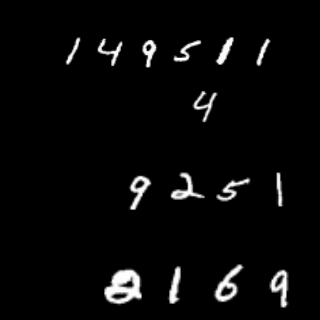 149511
4
9251
2169